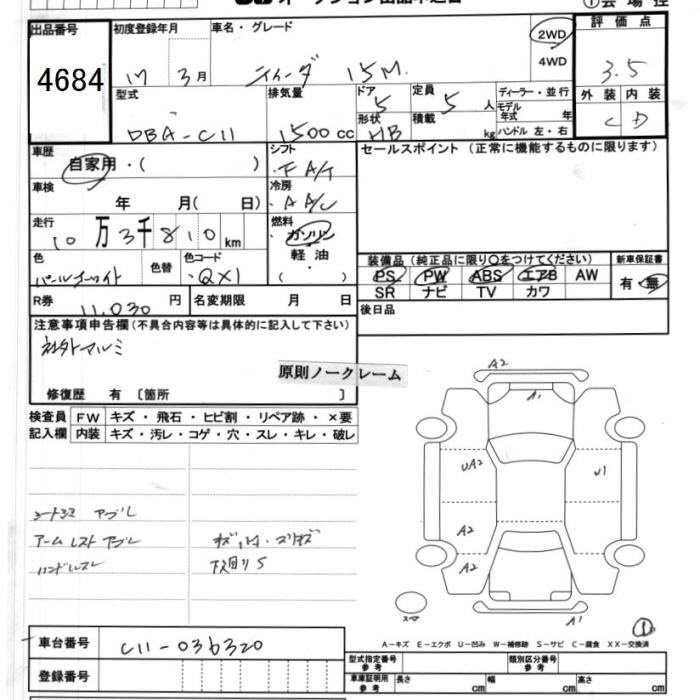 オークション出品申込書
①会場控
出品番号 4684
初度登録年月 17 3月
車名・グレード ティーダ 15M
2WD
4WD
評価点 3.5
外装 C 内装 D
型式 DBA-C11
排気量 1500cc
ドア 5
形状 HB
定員 5 人
積載 kg
ディーラー・並行
モデル年式 年
ハンドル 左・右
車歴 自家用・( )
シフト F A/T
セールスポイント(正常に機能するものに限ります)
車検 年 月( 日)
冷房 A A/C
走行 10万3千810km
燃料 ガソリン
軽油
・
( )
色 パールホワイト
色替
色コード QX1
装備品(純正品に限り○をつけてください)
PS PW ABS エアB AW
SR ナビ TV カワ
新車保証書
有・無
R券 11,030 円
名変期限 月 日
後日品
注意事項申告欄(不具合内容等は具体的に記入して下さい)
社外アルミ
原則ノークレーム
修復歴 有 〔箇所 〕
検査員記入欄
FW キズ・飛石・ヒビ割・リペア跡・×要
内装 キズ・汚レ・コゲ・穴・スレ・キレ・破レ
アームレスト
ハンドルスレ
下回りS
A2
A1
UA2
U1
A2
A2
A1
スペア
①
A－キズ E－エクボ U－凹み W－補修跡 S－サビ C－腐食 XX－交換済
車台番号 C11-036320
登録番号
型式指定番号参考
類別区分番号参考
車庫証明用参考 長さ cm 幅 cm 高さ cm